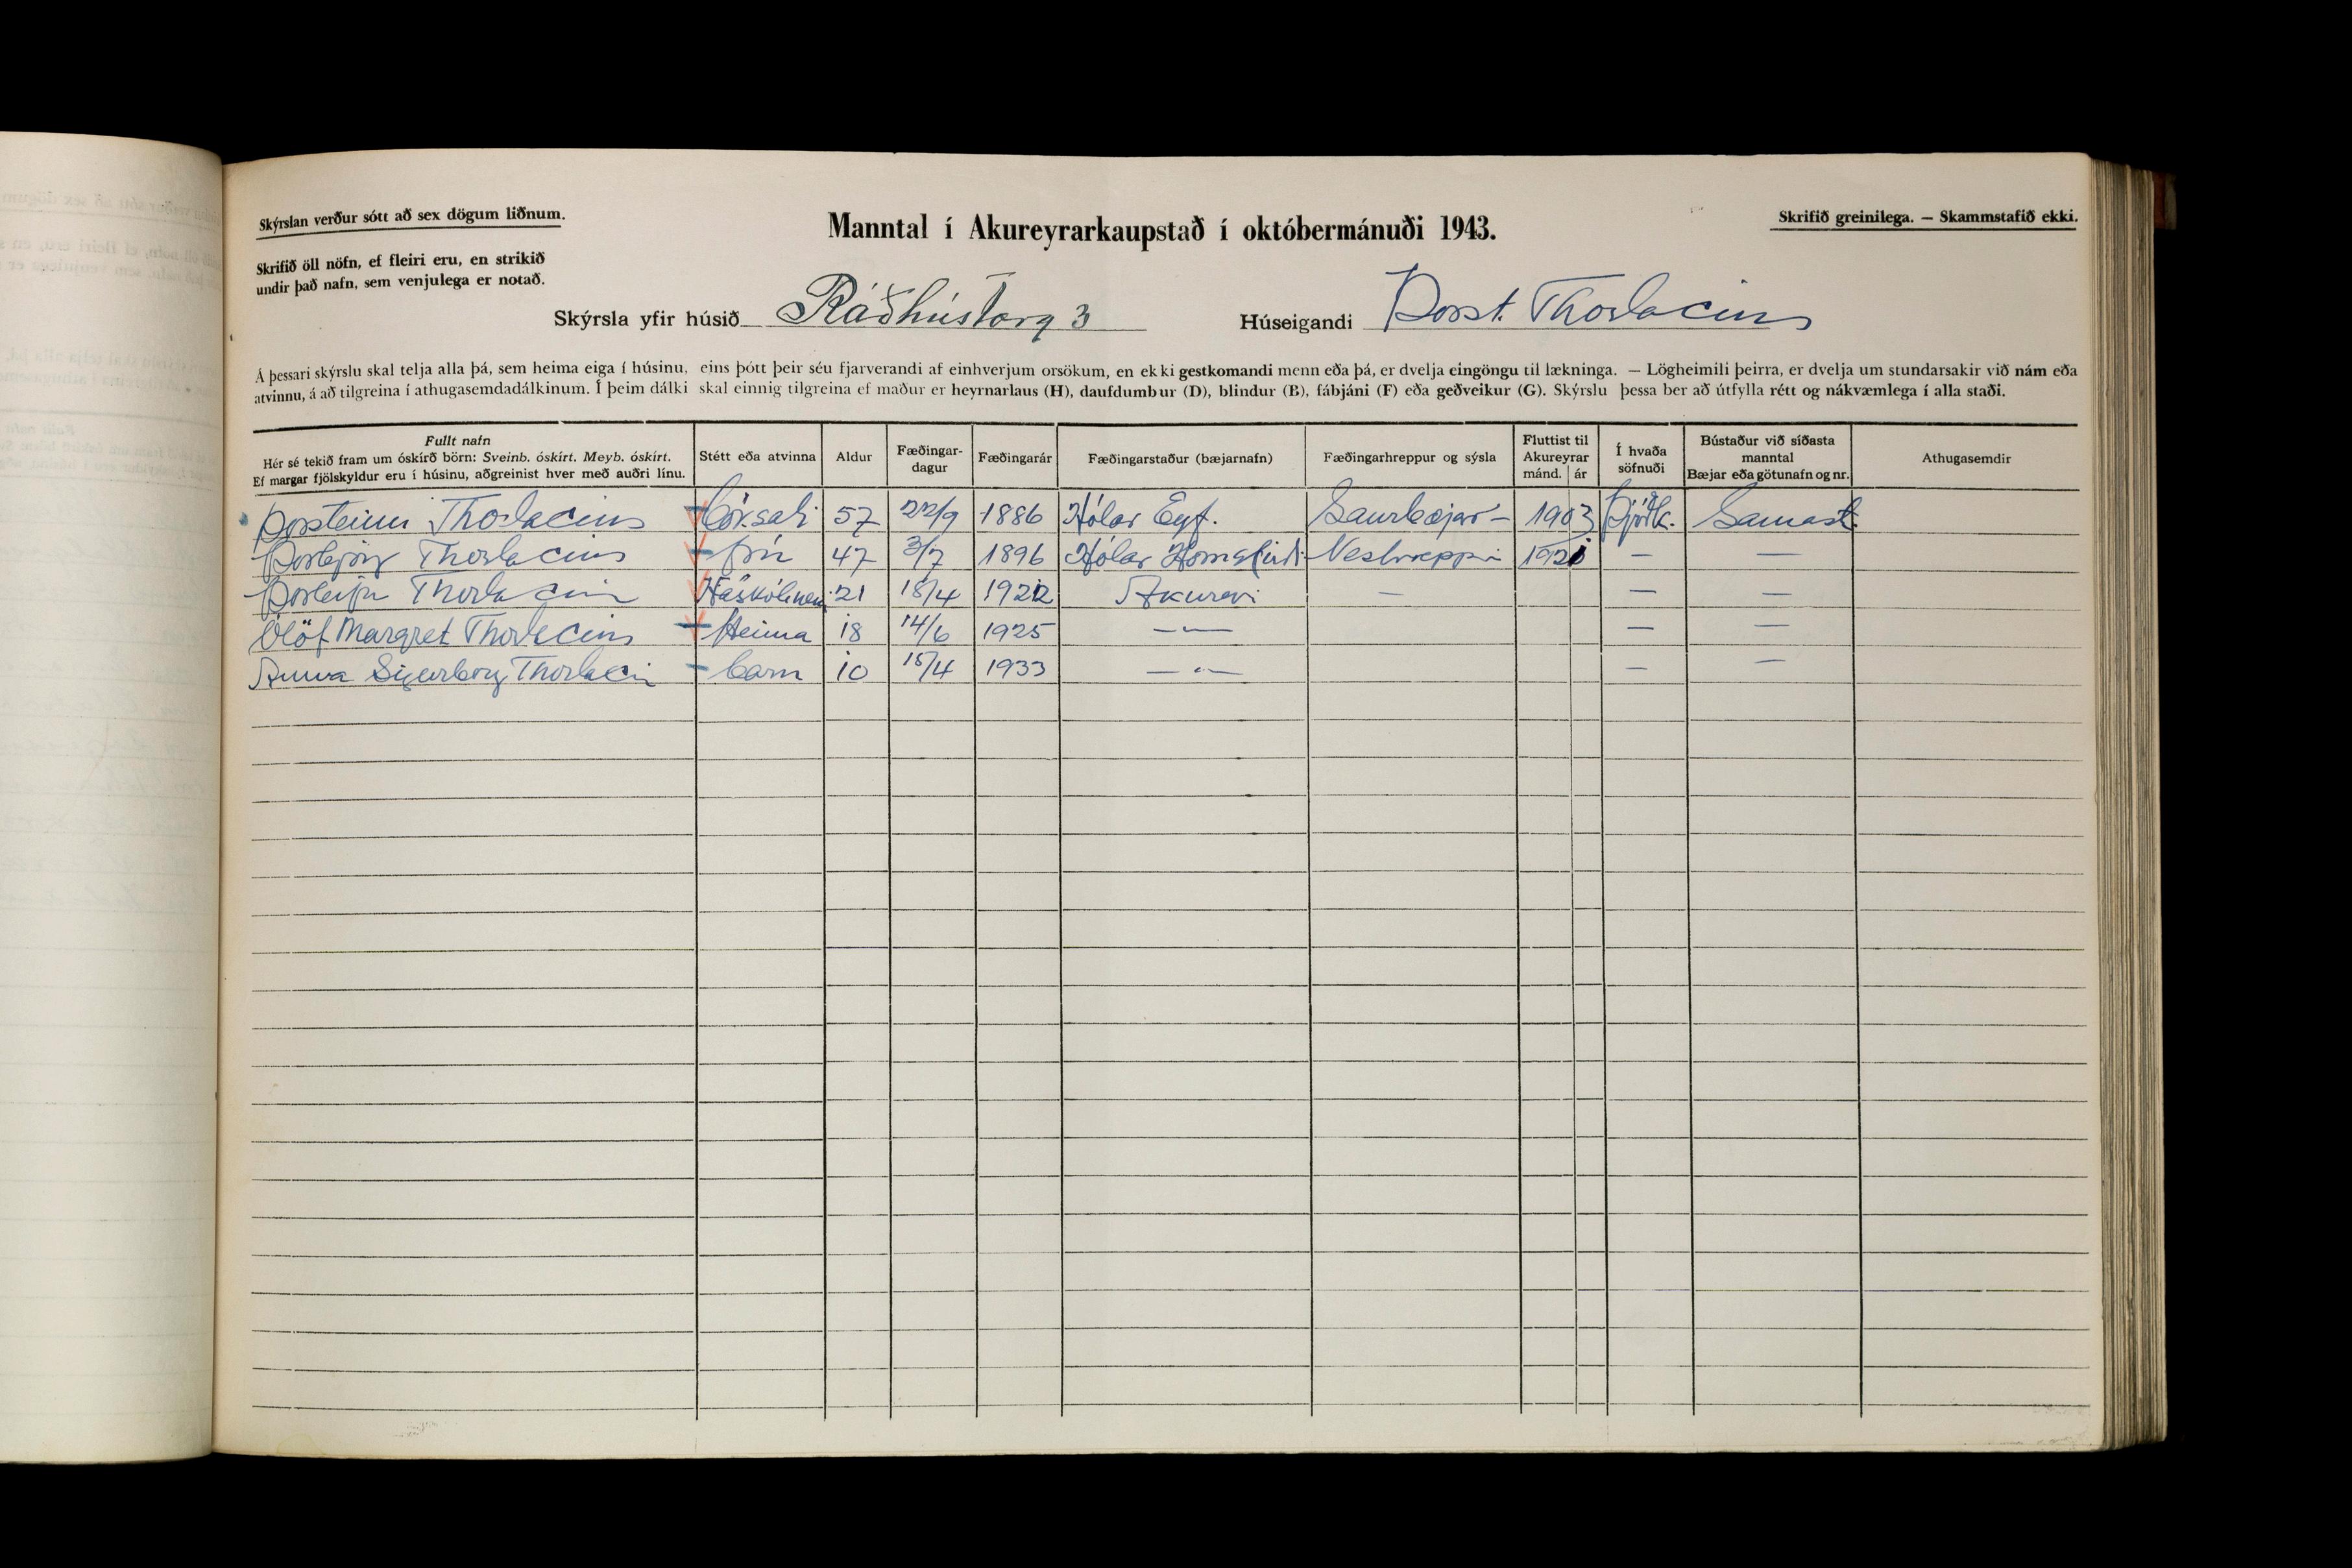 Skýrslan verður sótt að sex dögum liðnum.
Manntal í Akureyrarkaupstað í októbermánuði 1943.
Skrifið greinilega. — Skammstafið ekki.
Skrifið öll nöfn, ef fleiri eru, en strikið
undir það nafn, sem venjulega er notað.
Skýrsla yfir húsið Ráðhústorg 3 Húseigandi Þorst. Thorlacius
Á þessari skýrslu skal telja alla þá, sem heima eiga í húsinu, eins þótt þeir séu fjarverandi af einhverjum orsökum, en ekki gestkomandi menn eða þá, er dvelja eingöngu til lækninga. — Lögheimili þeirra, er dvelja um stundarsakir við nám eða
atvinnu, á að tilgreina í athugasemdadálkinum. Í þeim dálki skal einnig tilgreina ef maður er heyrnarlaus (H), daufdumbur (D), blindur (B), fábjáni (F) eða geðveikur (G). Skýrslu þessa ber að útfylla rétt og nákvæmlega í alla staði.
Fullt nafn
Hér sé tekið fram um óskírð börn: Sveinb. óskírt. Meyb. óskírt.
Ef margar fjölskyldur eru í húsinu, aðgreinist hver með auðri línu.
Stétt eða atvinna
Aldur
Fæðingar-
dagur
Fæðingarár
Fæðingarstaður (bæjarnafn)
Fæðingarhreppur og sýsla
Fluttist til
Akureyrar
mánd. ár
Í hvaða
söfnuði
Bústaður við síðasta
manntal
Bæjar eða götunafn og nr.
Athugasemdir
Þorsteinn Thorlacius bóksali 57 22/9 1886 Hólar Eyf. Saurbæjar- 1903 Þjóðk. Samast.
Þorbjörg Thorlacius frú 47 3/7 1896 Hólar Hornafirði Neshreppi 1920 — —
Þorleifur Thorlacius Háskólanemi 21 18/4 1922 Akureyri — — —
Ólöf Margret Thorlacius Heima 18 14/6 1925 —"— — —
Anna Sigurborg Thorlaciu barn 10 15/4 1933 —"— — —